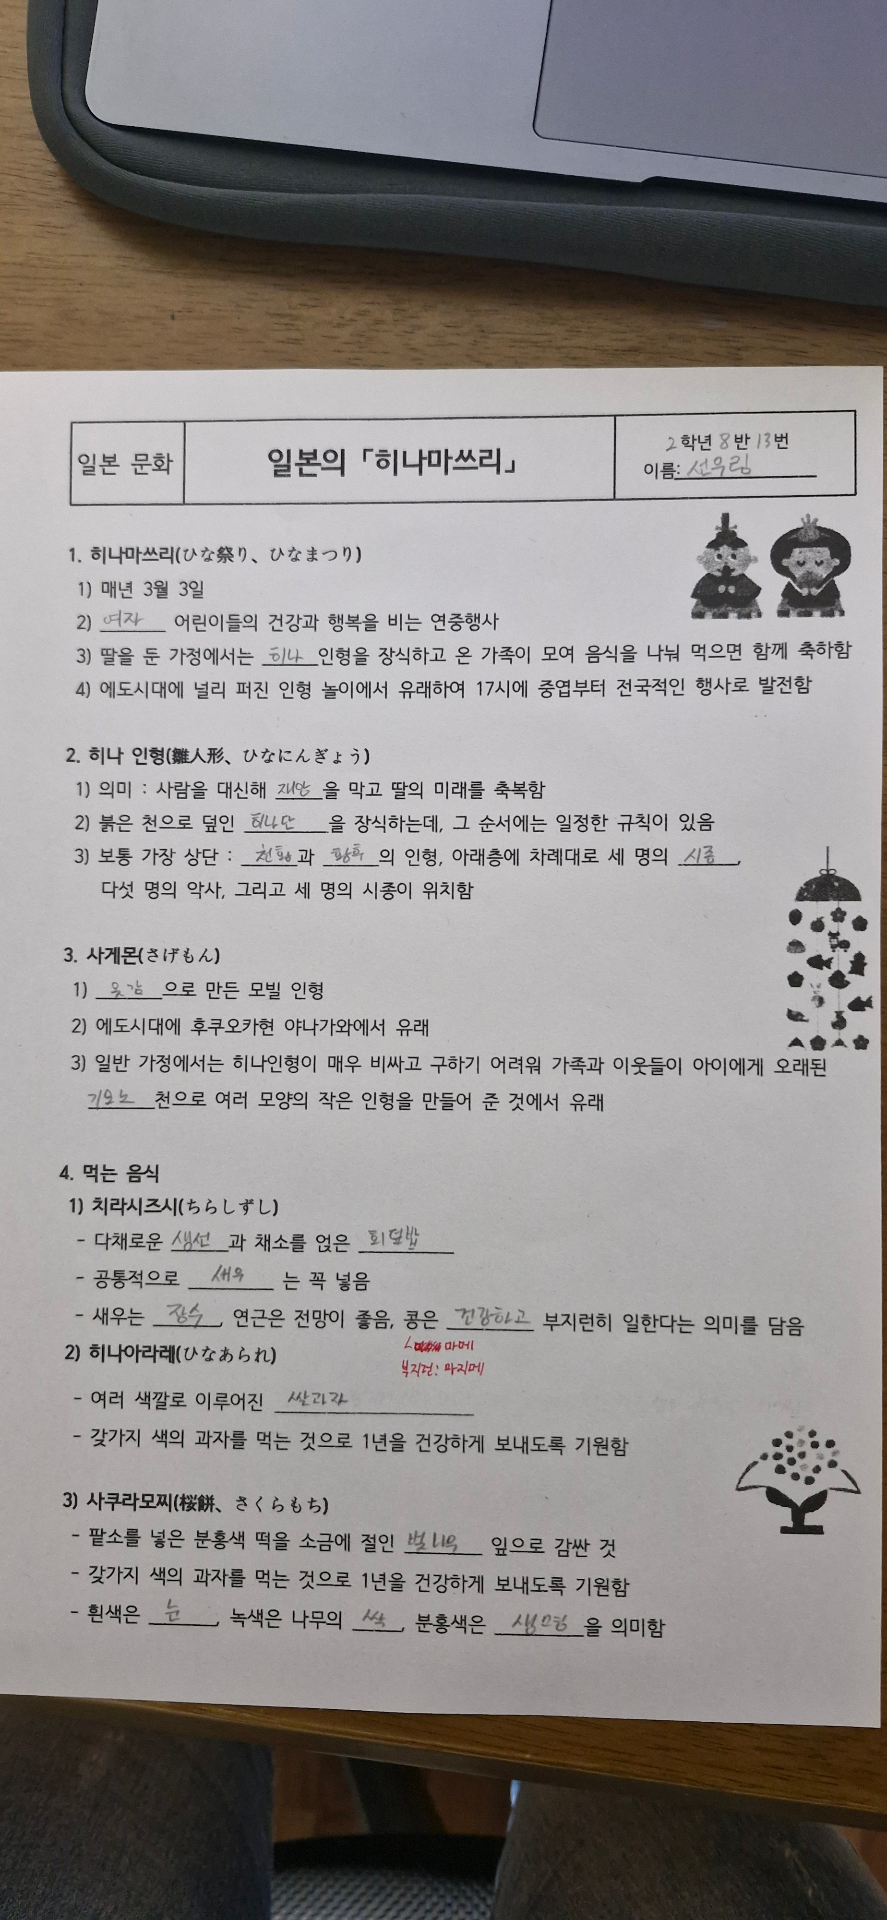 일본 문화
일본의 「히나마쓰리」
2학년 8반 13번
이름: 선우림
1. 히나마쓰리(ひな祭り、ひなまつり)
1) 매년 3월 3일
2) 여자 어린이들의 건강과 행복을 비는 연중행사
3) 딸을 둔 가정에서는 히나 인형을 장식하고 온 가족이 모여 음식을 나눠 먹으면 함께 축하함
4) 에도시대에 널리 퍼진 인형 놀이에서 유래하여 17시에 중엽부터 전국적인 행사로 발전함
2. 히나 인형(雛人形、ひなにんぎょう)
1) 의미 : 사람을 대신해 재앙을 막고 딸의 미래를 축복함
2) 붉은 천으로 덮인 히나단을 장식하는데, 그 순서에는 일정한 규칙이 있음
3) 보통 가장 상단 : 천황과 황후의 인형, 아래층에 차례대로 세 명의 시종,
다섯 명의 악사, 그리고 세 명의 시종이 위치함
3. 사게몬(さげもん)
1) 옷감으로 만든 모빌 인형
2) 에도시대에 후쿠오카현 야나가와에서 유래
3) 일반 가정에서는 히나인형이 매우 비싸고 구하기 어려워 가족과 이웃들이 아이에게 오래된
기모노 천으로 여러 모양의 작은 인형을 만들어 준 것에서 유래
4. 먹는 음식
1) 치라시즈시(ちらしずし)
- 다채로운 생선과 채소를 얹은 회덮밥
- 공통적으로 새우 는 꼭 넣음
- 새우는 장수, 연근은 전망이 좋음, 콩은 건강하고 부지런히 일한다는 의미를 담음
마메
부지런: 마지메
2) 히나아라레(ひなあられ)
- 여러 색깔로 이루어진 쌀과자
- 갖가지 색의 과자를 먹는 것으로 1년을 건강하게 보내도록 기원함
3) 사쿠라모찌(桜餅、さくらもち)
- 팥소를 넣은 분홍색 떡을 소금에 절인 벚나무 잎으로 감싼 것
- 갖가지 색의 과자를 먹는 것으로 1년을 건강하게 보내도록 기원함
- 흰색은 눈, 녹색은 나무의 싹, 분홍색은 생명을 의미함